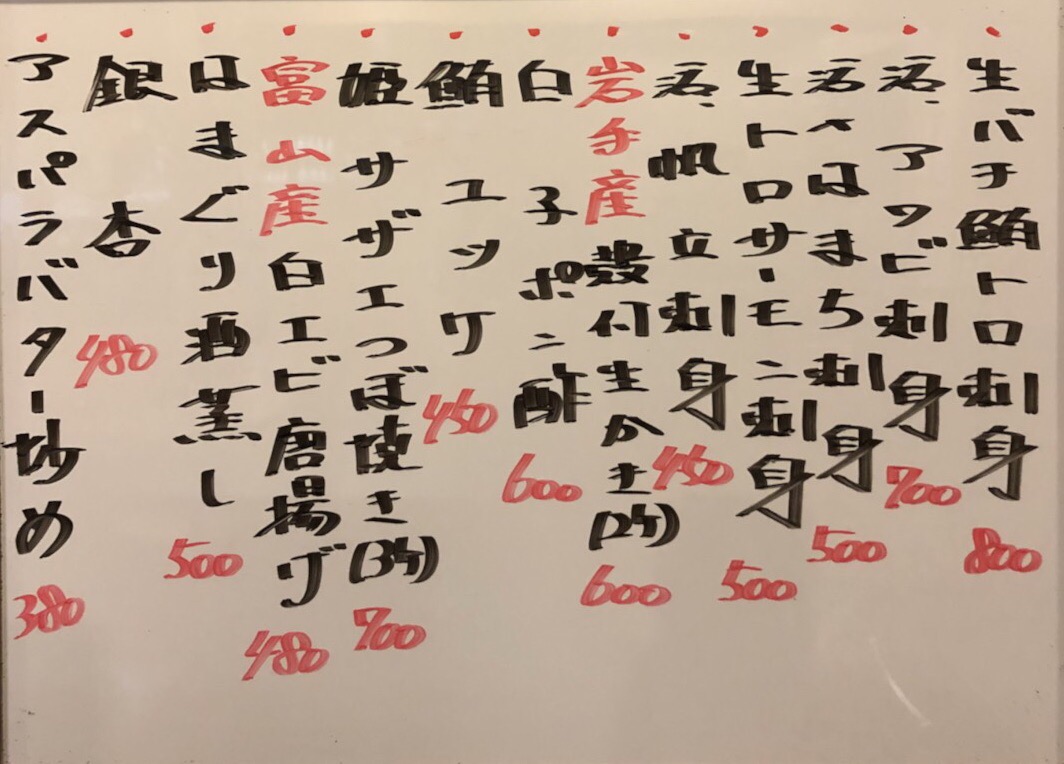 ・生バチ鮪トロ刺身 800
・活、アワビ刺身 700
・活〆はまち刺身 500
・生トロサーモン刺身 500
・活、帆立刺身 450
・岩手産殻付生かき(2ケ) 600
・白子ポン酢 600
・鮪ユッケ 450
・姫サザエつぼ焼き(3ケ) 700
・富山産白エビ唐揚げ 480
・はまぐり酒蒸し 500
・銀杏 480
・アスパラバター炒め 380